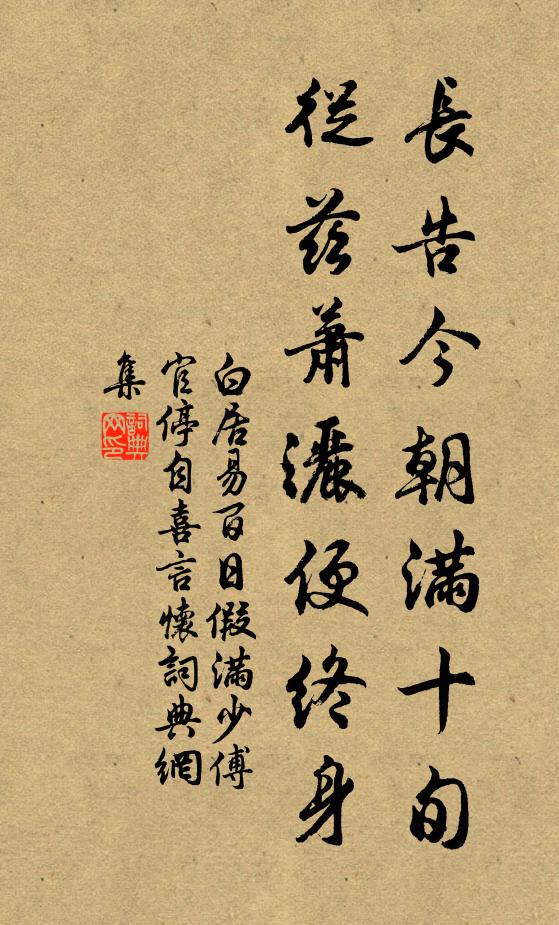 長告今朝滿十旬
從茲蕭灑便終身
白居易百日假滿少傅
官停自喜言懷詞典網
集
詞典
網印